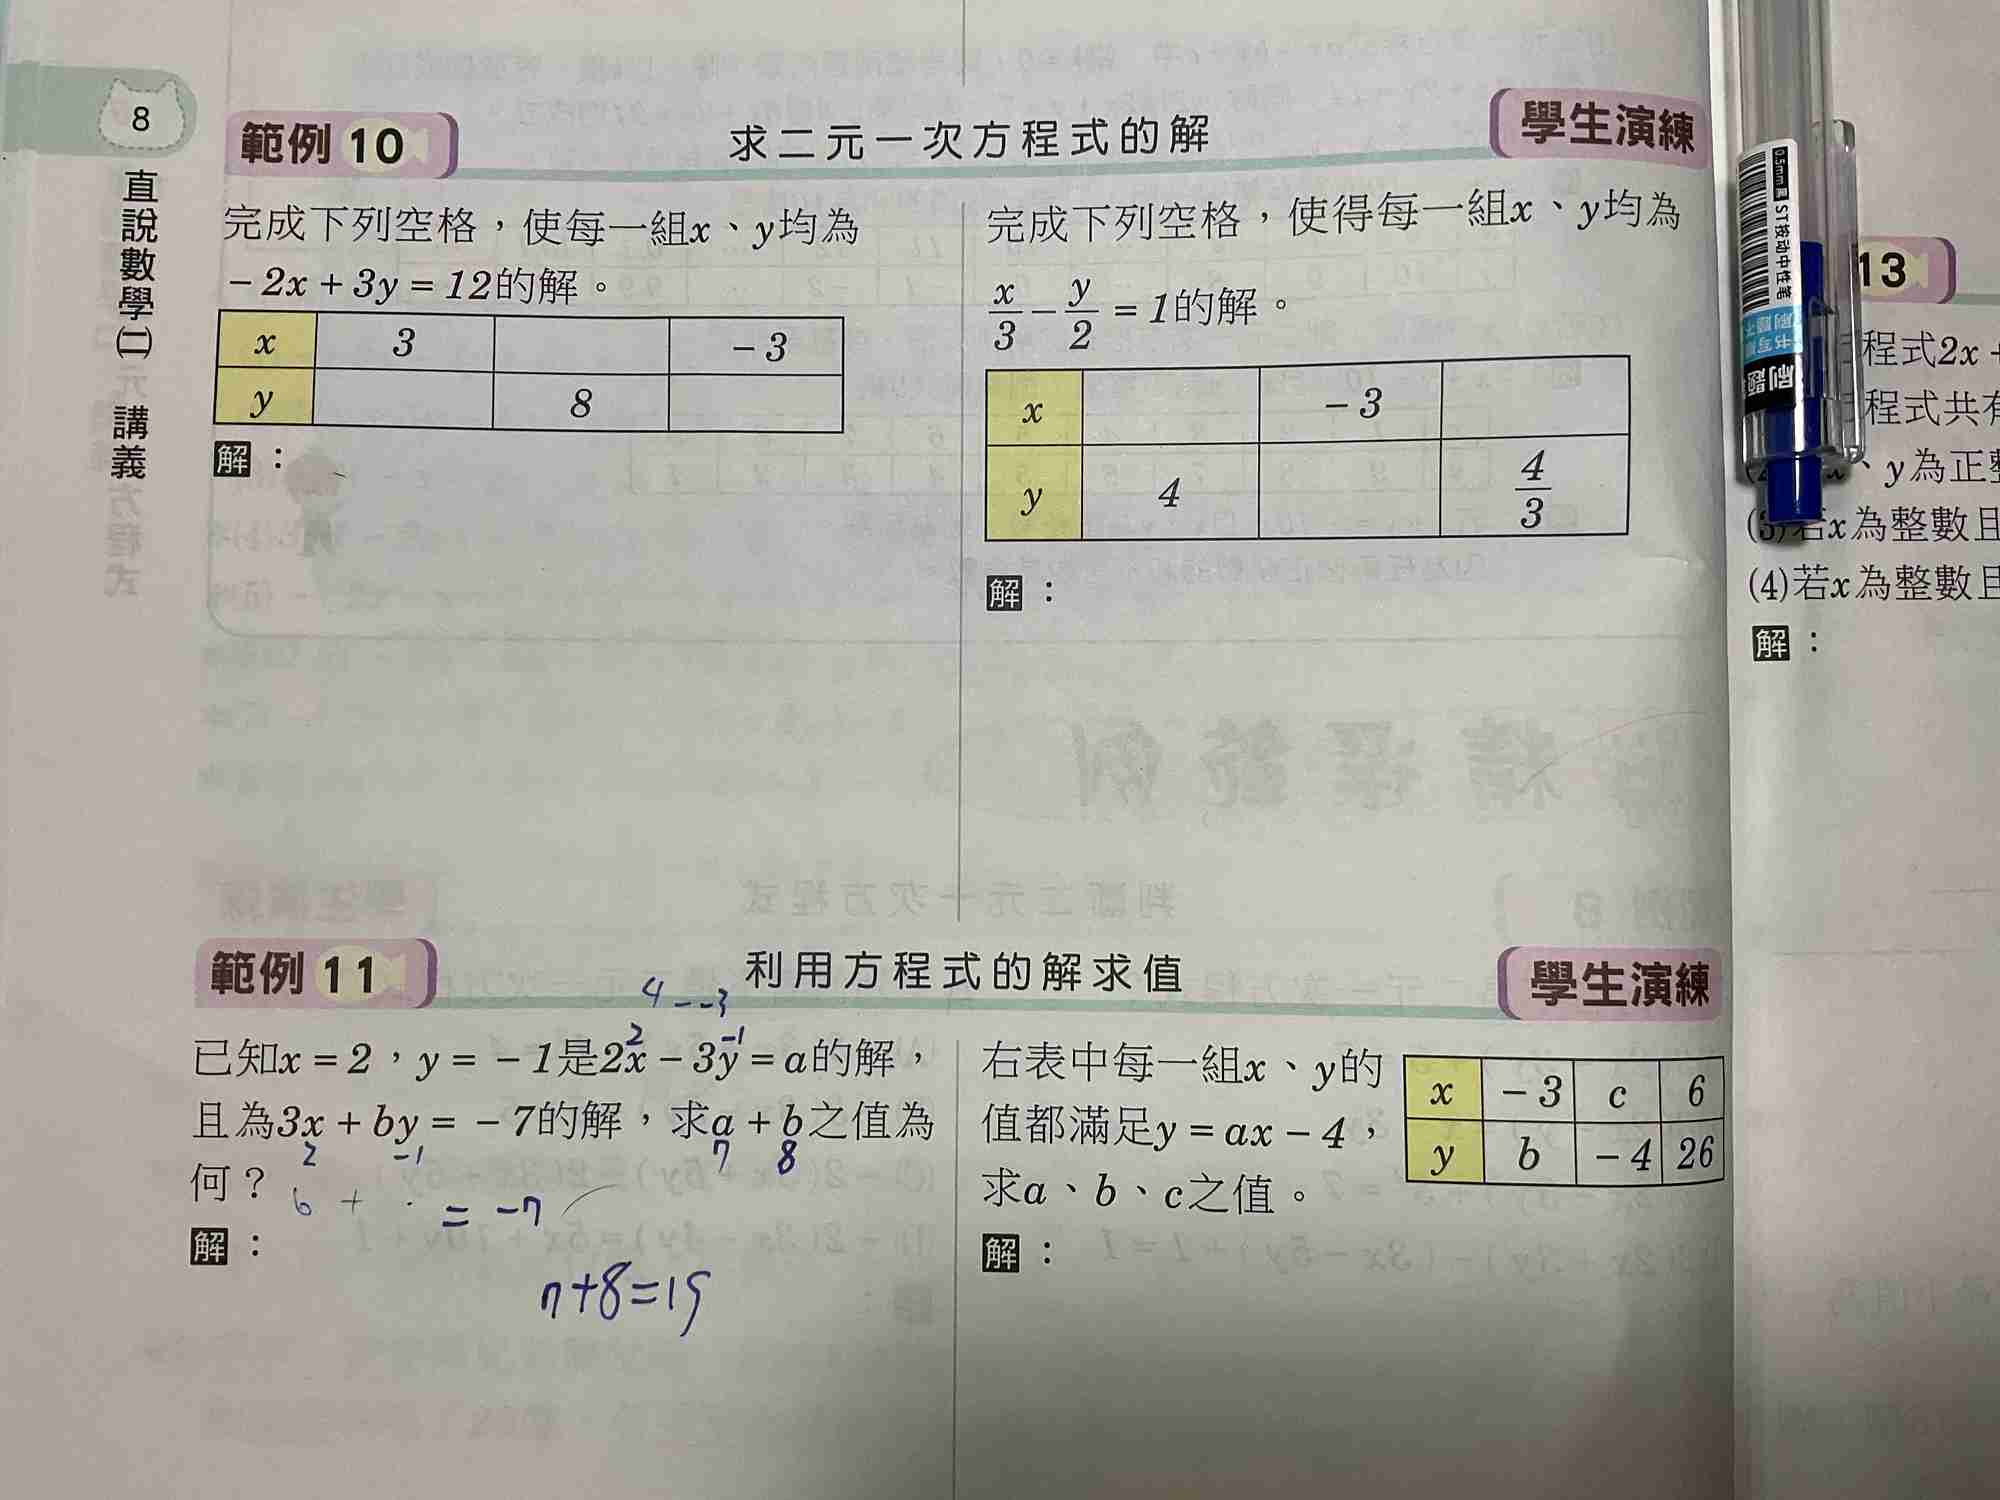 8
直說數學(二) 講義
範例 10
求二元一次方程式的解
學生演練
完成下列空格，使每一組x、y均為
-2x+3y=12的解。
x 3 -3
y 8
解：
完成下列空格，使得每一組x、y均為
x/3-y/2=1的解。
x -3
y 4 4/3
解：
範例 11
利用方程式的解求值
學生演練
4--3
2 -1
已知x=2，y=-1是2x-3y=a的解，
且為3x+by=-7的解，求a+b之值為
2 -1 7 8
何？
6 + = -7
解：
7+8=15
右表中每一組x、y的
值都滿足y=ax-4，
求a、b、c之值。
x -3 c 6
y b -4 26
解：
13
程式2x+
程式共有
、y為正整
(3)若x為整數且
(4)若x為整數且
解：
0.5mm
ST按动中性笔
刷題